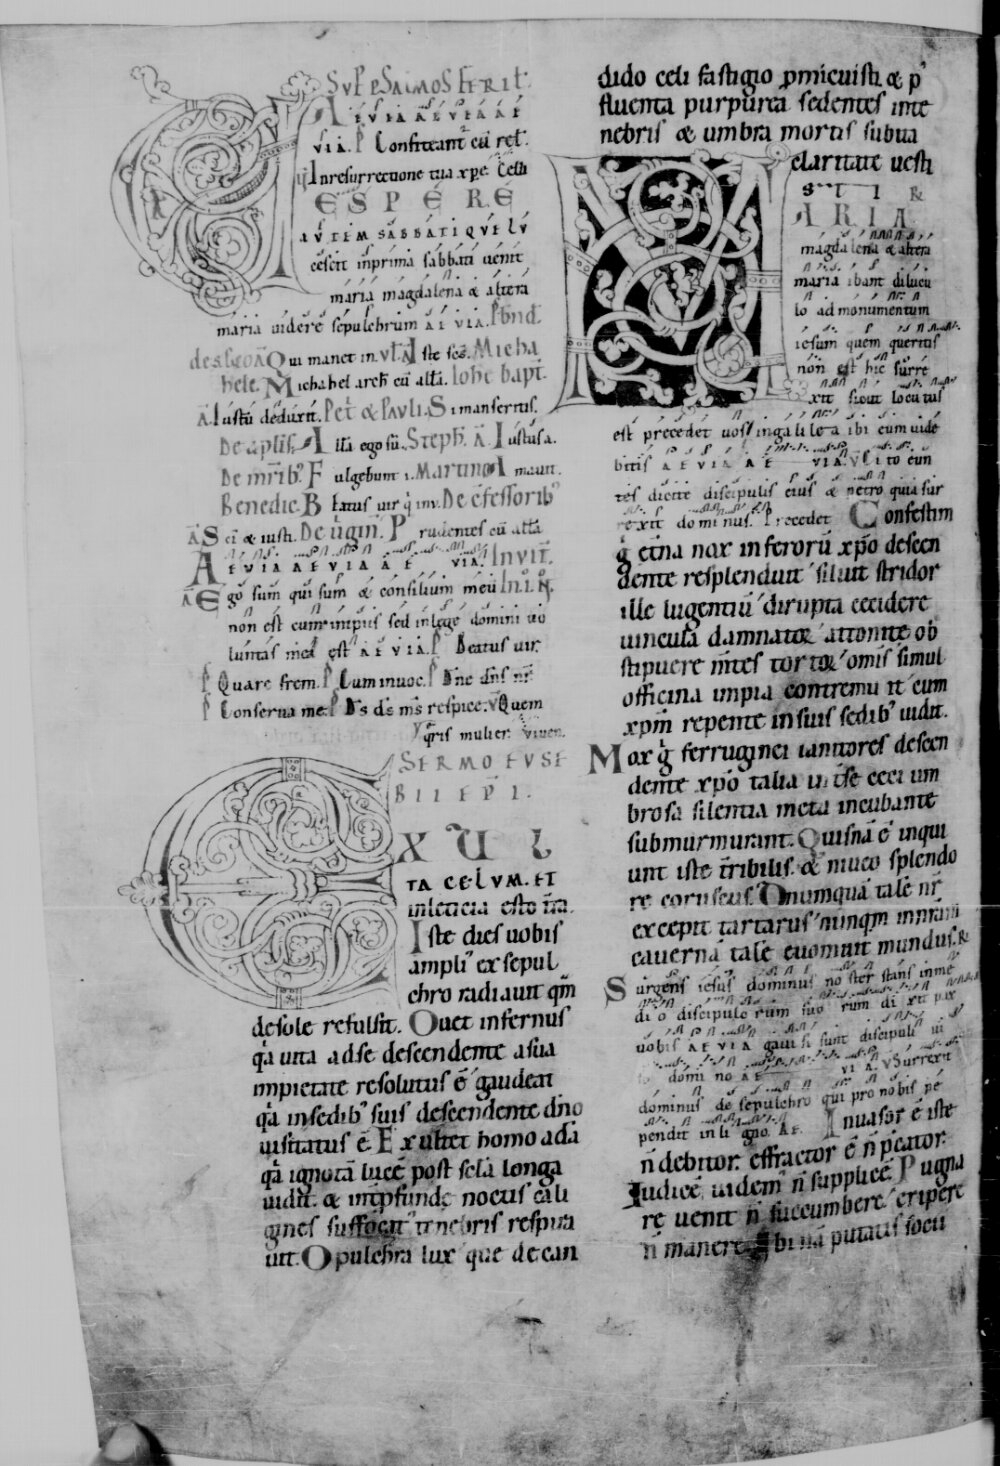 SVP PSALMOS FERIT
AEVIA AEVIA AE
VIA. P Confiteant̄ cū rel.
In resurrectione tua xp̄e. Celi
ESPERE
AVTEM SABBATI QVE LV
cescit in prima sabbati uenit
maria magdalena & altera
maria uidere sepulchrum AEVIA.
Qui manet in. Iste scs. Micha
hele. Michahel arch cū alta. Iohe bapt.
A Iustū deduxit. Petˉ & Pauli. Si manseritis.
De aplis. A Illa ego sū. Steph. A Iustus a.
De mrib᷒ Fulgebunt i. Martino A mauit.
Benedic. Beatus uir q̇ inv. De c̄fessorib᷒
A Sci & iusti. De uirgin. Prudentes cū alta
AEVIA AEVIA AE VIA. Invit.
A Ego sum qui sum & consilium meū In I N.
non est cum impiis sed in lege domini uo
luntas mea est AEVIA. P Beatus uir.
P Quare frem. P Cum inuoc. P Dn̄e dn̄s nr̄
P Conserua me. P D̄s d̄s m̄s respice. V Quem
queris mulier uiuen.
SERMO EVSE
BII EPI.
EXUL
TA CELVM. ET
in leticia esto tr̄a.
Iste dies uobis
ampli᷒ ex sepul
chro radiauit qm̄
de sole refulsit. Ouet infernus
q̄a uita ad se descendente a sua
impietate resolutus ē gaudeat
q̄a in sedib᷒ suis descendente dn̄o
uisitatus ē. Exultet homo adā
q̄a ignotā lucē post sc̄la longa
uidit. & int̄ p̄funde noctis cali
gines suffocat᷒ tenebris respira
uit. O pulchra lux que de can
dido celi fastigio p̄micuisti & p̄
fluenta purpurea sedentes in te
nebris & umbra mortis subita
claritate uesti
MARIA
magdalena & altera
maria ibant dilucu
lo ad monumentum
iesum quem queritis
non est hic surre
xit sicut locutus
est precedet uos in galilea ibi eum uide
bitis AEVIA AE VIA. V Cito eun
tes dicite discipulis eius & petro quia sur
rexit dominus. Precedet Confestim
ḡ etn̄a nox inferorū xp̄o descen
dente resplenduit siluit stridor
ille lugentiū dirupta cecidere
uincula damnatoꝝ attonite ob
stipuere m̄tes tortoꝝ om̄is simul
officina impia contremuit cum
xp̄m repente in suis sedib᷒ uidit.
Mox ḡ ferruginei ianitores descen
dente xp̄o talia int̄ se ceci um
brosa silentia metu incubante
submurmurant. Quisnā ē inqui
unt iste t̄ribilis & niueo splendo
re coruscus. Numquā tale nr̄
excepit tartarus nūnqm̄ in nrām
cauernā tale euomuit mundus. &
Surgens iesus dominus noster stans in me
dio discipulorum suorum dixit pax
uobis AEVIA gauisi sunt discipuli ui
so domino AE VIA. V Surrexit
dominus de sepulchro qui pro nobis pe
pendit in ligno. AE. Inuasor ē iste
n̄ debitor. effractor ē n̄ peccator.
Iudicē uidem᷒ n̄ supplicē. Pugna
re uenit n̄ succumbere eripere
n̄ manere. Vbi nā putatis socii